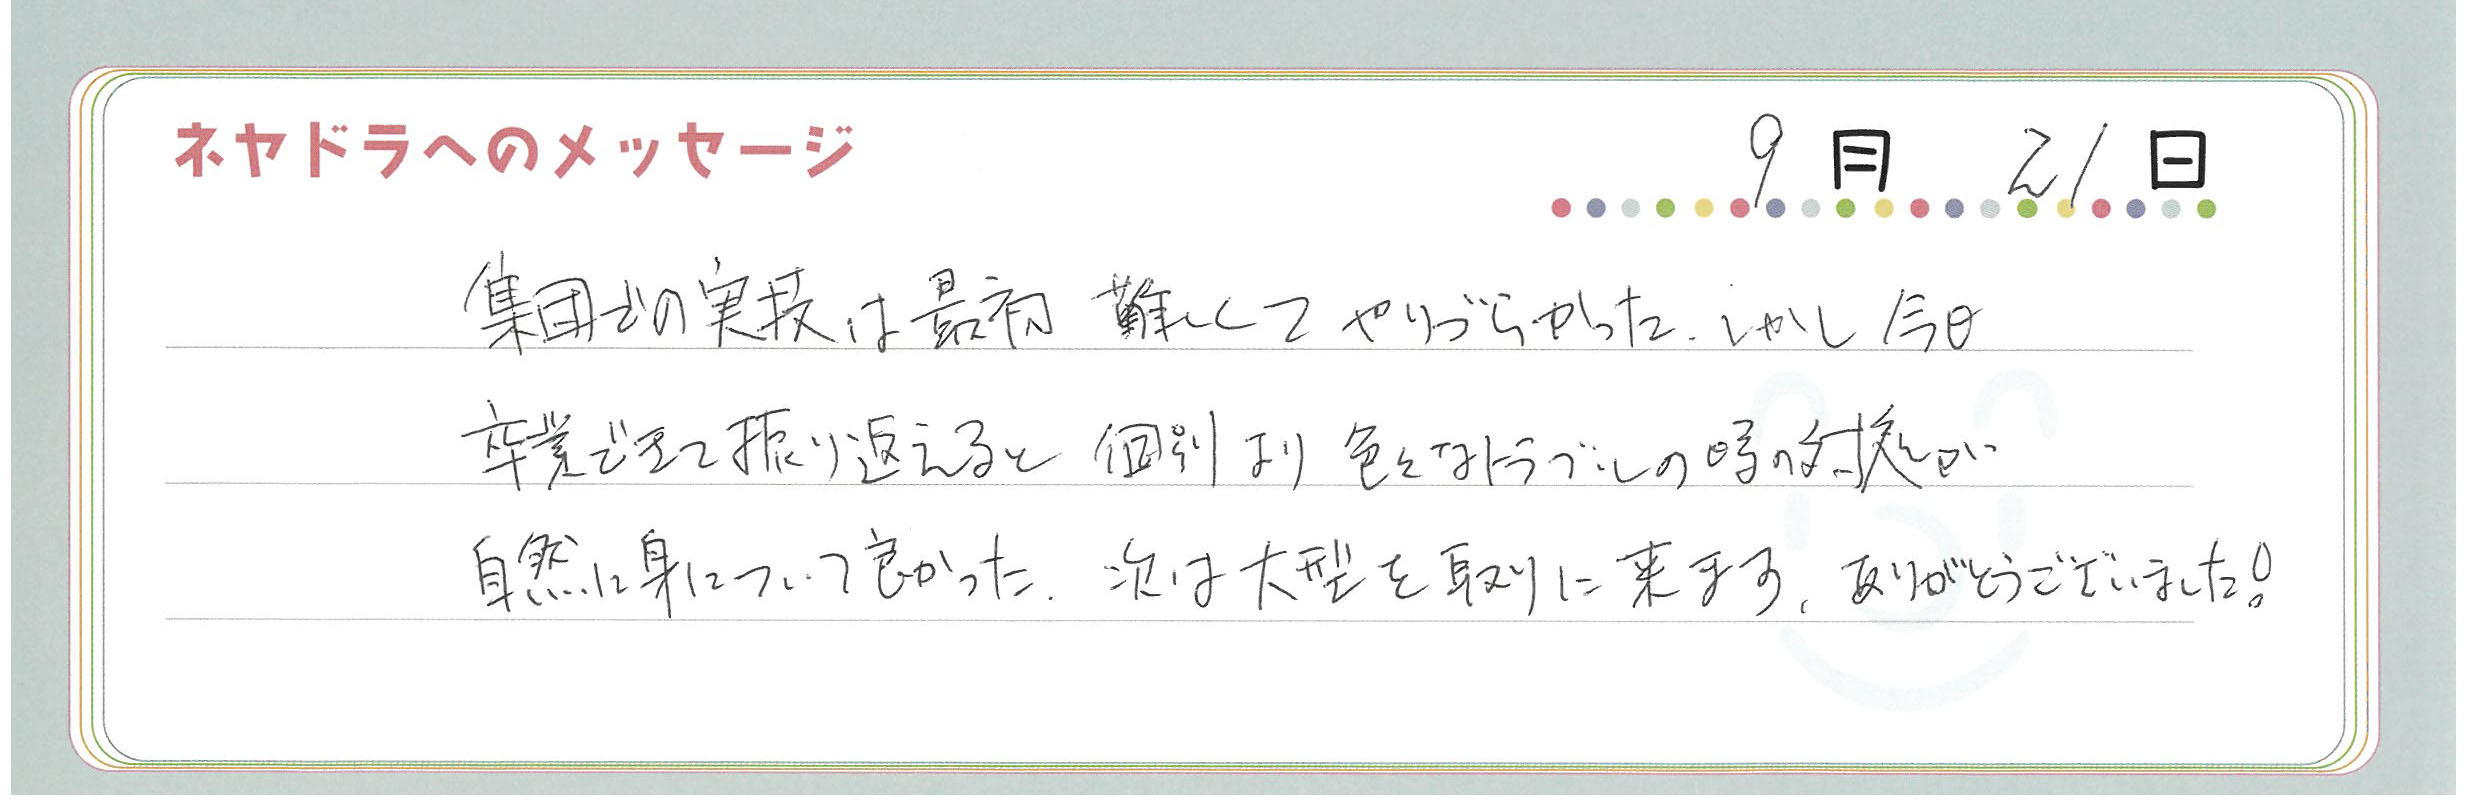 ネヤドラへのメッセージ
9月 21日
集団での実技は最初 難しくて やりづらかった。しかし 今日
卒業できて振り返えると 個別より 色々なトラブルの時の対処が
自然に身について良かった。次は大型を取りに来ます。ありがとうございました!